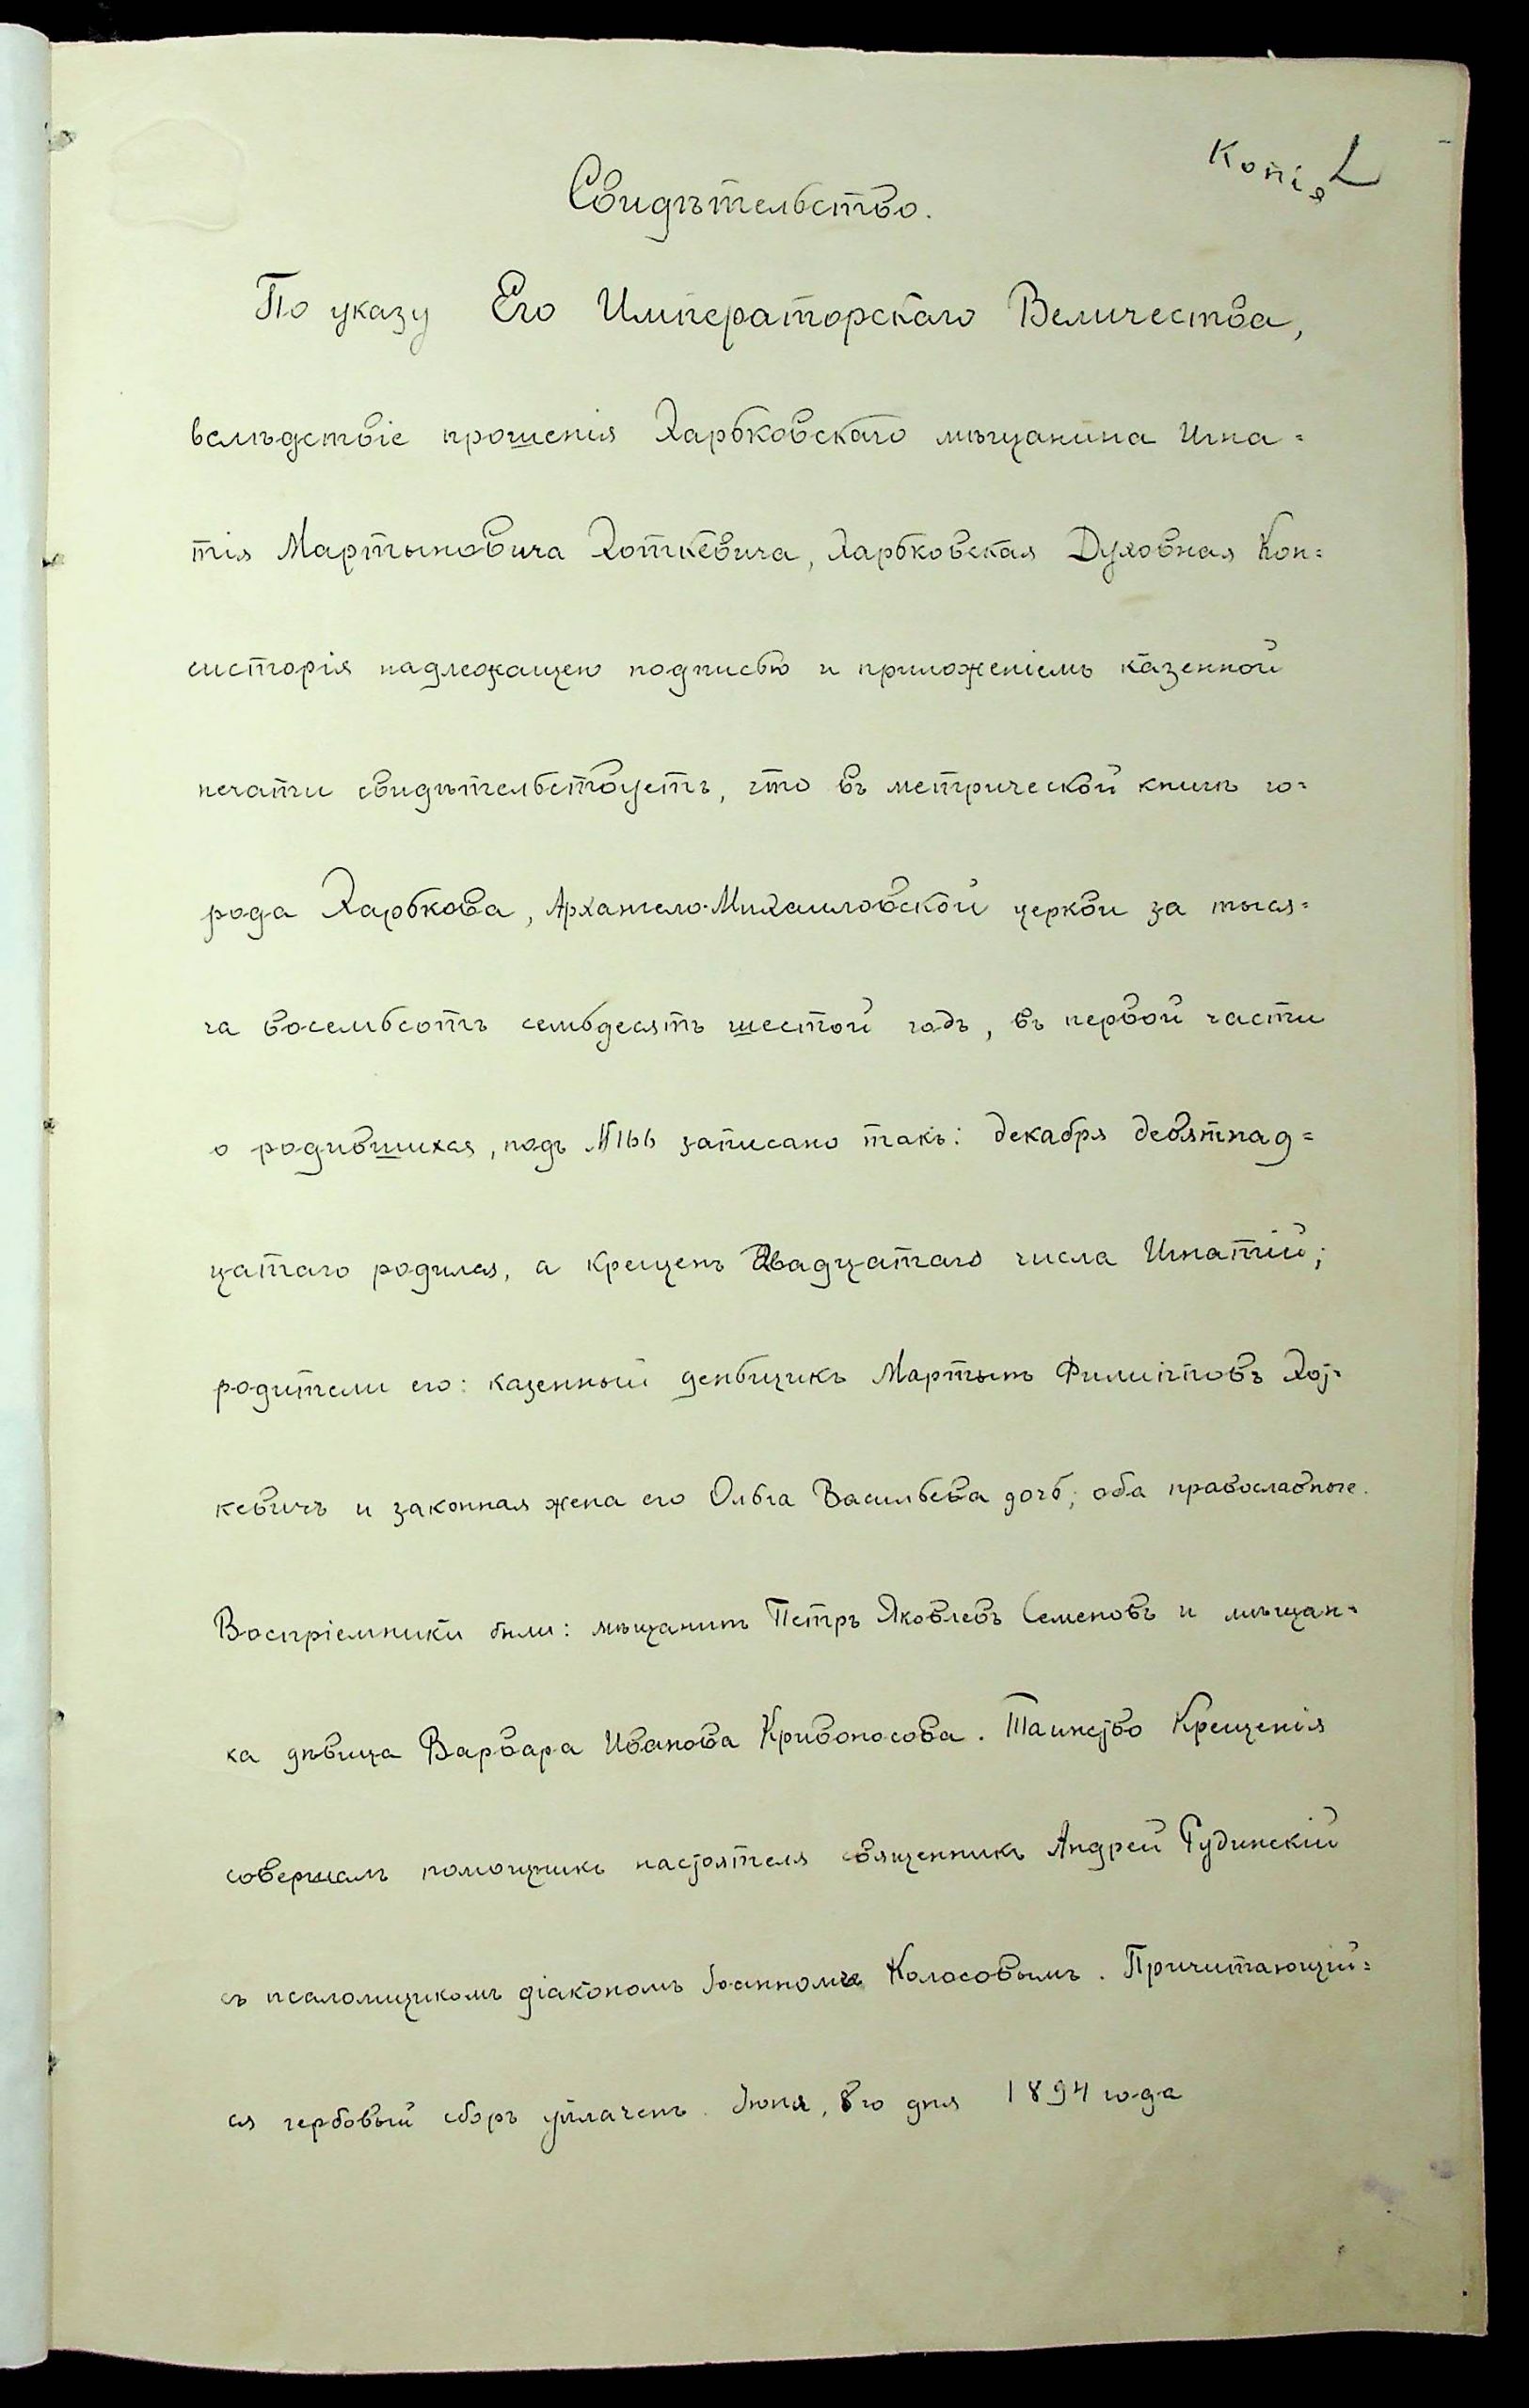 Копія
Свидѣтельство.
По указу Его Императорскаго Величества,
вслѣдствіе прошенія Харьковскаго мѣщанина Игна=
тія Мартыновича Хоткевича, Харьковская Духовная Кон=
систорія надлежащею подписью и приложеніемъ казенной
печати свидѣтельствуетъ, что въ метрической книгѣ го=
рода Харькова, Архангело-Михаиловской церкви за тыся=
ча восемьсотъ семьдесятъ шестой годъ, въ первой части
о родившихся, подъ №166 записано такъ: декабря девятнад=
цатаго родился, а крещенъ двадцатаго числа Игнатій;
родители его: казенный деньщикъ Мартынъ Филипповъ Хот=
кевичъ и законная жена его Ольга Васильева дочь; оба православные.
Воспріемники были: мѣщанинъ Петръ Яковлевъ Семеновъ и мѣщан=
ка дѣвица Варвара Иванова Кривоносова. Таинство Крещенія
совершалъ помощникъ настоятеля священникъ Андрей Рудинскій
съ псаломщикомъ діакономъ Іоанномъ Колосовымъ. Причитающій=
ся гербовый сборъ уплаченъ. Іюня, 8го дня 1894 года